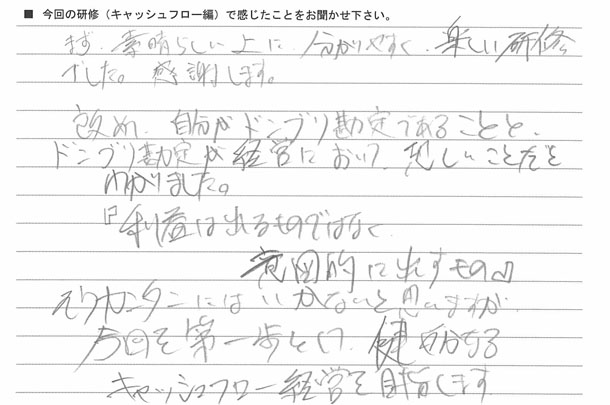 ■ 今回の研修（キャッシュフロー編）で感じたことをお聞かせ下さい。
まず、素晴らしい上に、分かりやすく、楽しい研修
でした。感謝します。
改め、自分がドンブリ勘定であることと、
ドンブリ勘定が経営において、恐しいことだと
わかりました。
『利益は出るものではなく、
意図的に出すもの』
そうカンタンにはいかないと思いますが、
今日を第一歩として、健全なる
キャッシュフロー経営を目指します